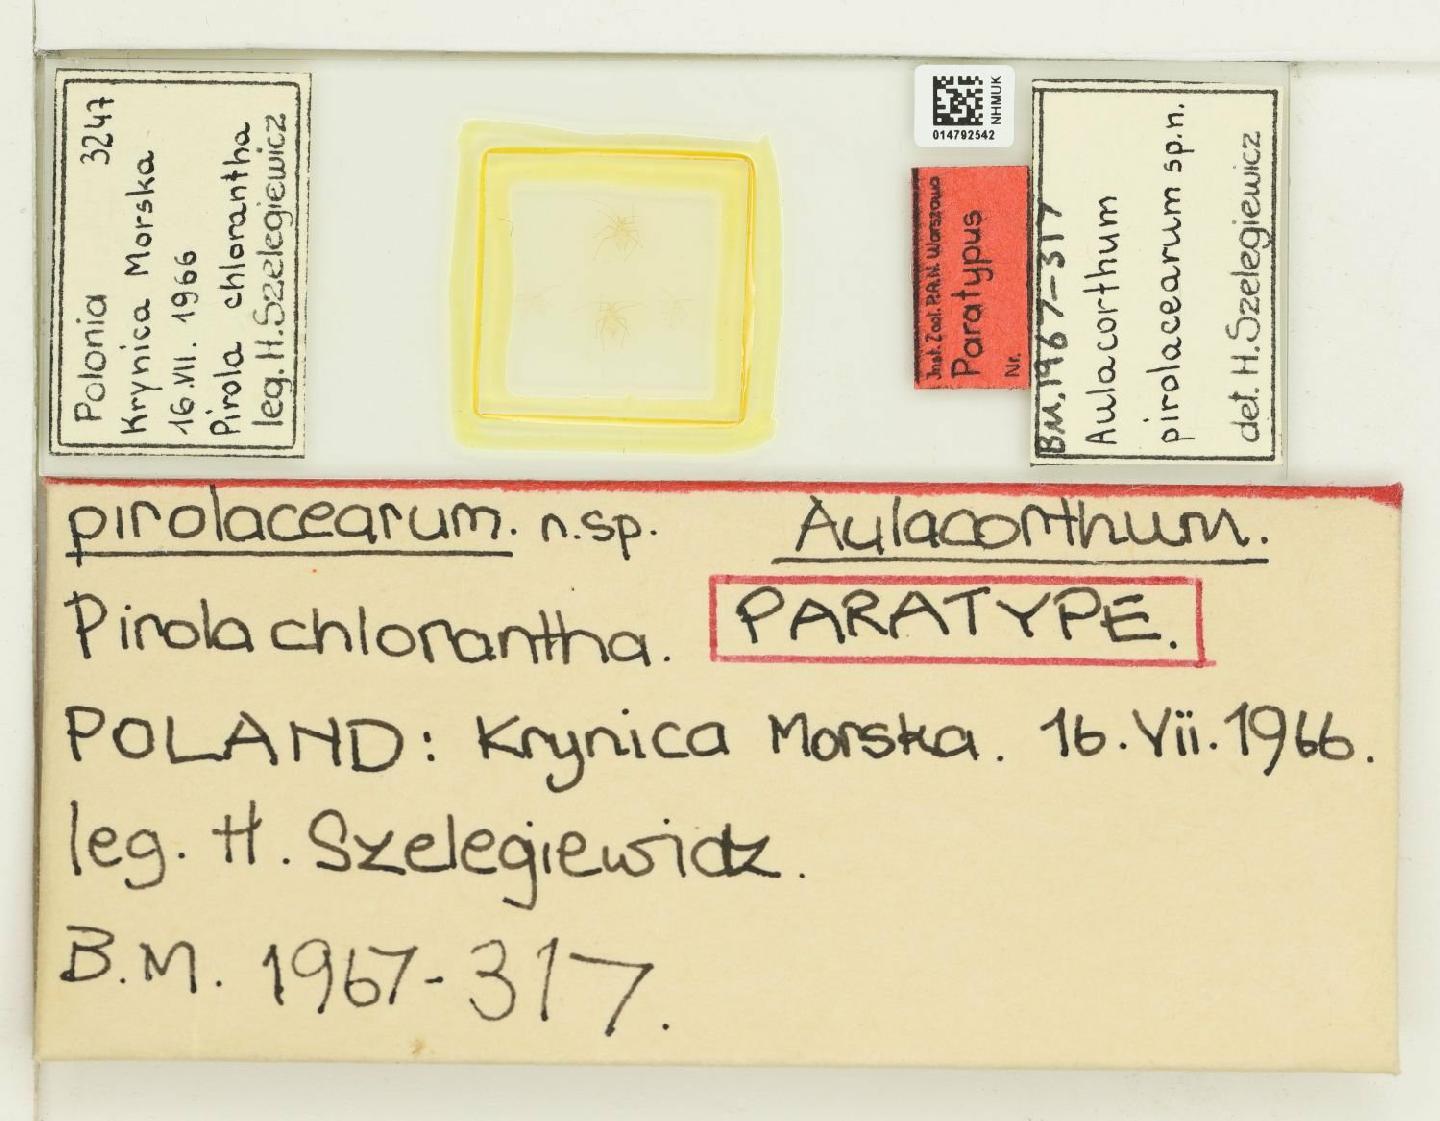 Polonia 3247
Krynica Morska
16.VII. 1966
Pirola chlorantha
leg. H. Szelegiewicz
NHMUK
014792542
Inst. Zool. P.A.N. Warszawa
Paratypus
Nr.
B.M. 1967-317
Aulacorthum
pirolacearum sp.n.
det. H. Szelegiewicz
pirolacearum. n.sp. Aulacorthum.
Pirola chlorantha. PARATYPE.
POLAND: Krynica Morska. 16.Vii.1966.
leg. H. Szelegiewidz.
B.M. 1967-317.